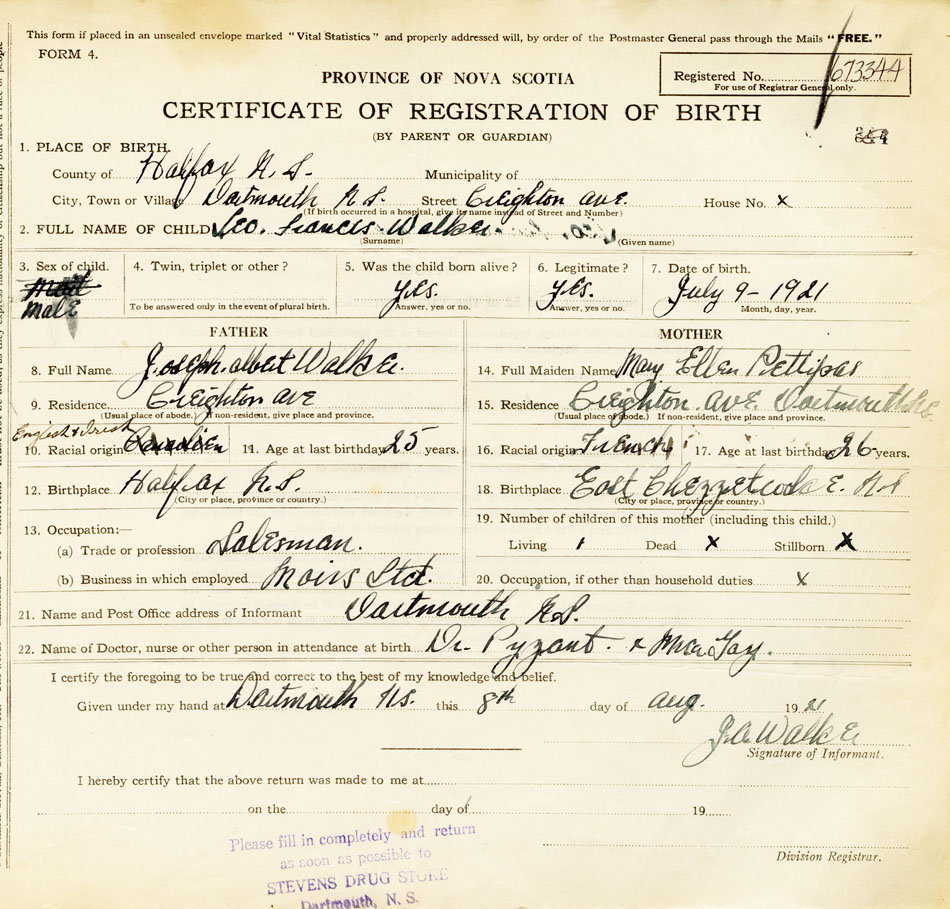 This form if placed in an unsealed envelope marked "Vital Statistics" and properly addressed will, by order of the Postmaster General pass through the Mails "FREE."
FORM 4.
PROVINCE OF NOVA SCOTIA
Registered No. 673344
For use of Registrar General only.
CERTIFICATE OF REGISTRATION OF BIRTH
(BY PARENT OR GUARDIAN)
1. PLACE OF BIRTH.
County of Halifax N.S. Municipality of
City, Town or Village Dartmouth N.S. Street Creighton ave. House No. x
(If birth occurred in a hospital, give its name instead of Street and Number)
2. FULL NAME OF CHILD Leo. Francis Walker.
(Surname) (Given name)
3. Sex of child. 4. Twin, triplet or other? 5. Was the child born alive? 6. Legitimate? 7. Date of birth.
Male yes. yes. July 9-1921
To be answered only in the event of plural birth. Answer, yes or no. Answer, yes or no. Month, day, year.
FATHER MOTHER
8. Full Name Joseph. albert Walker. 14. Full Maiden Name Mary Ellen Pettipas
9. Residence Creighton ave 15. Residence Creighton. ave. Dartmouth N.S.
(Usual place of abode.) If non-resident, give place and province. (Usual place of abode.) If non-resident, give place and province.
English & Irish
10. Racial origin Canadien 11. Age at last birthday 25 years. 16. Racial origin French 17. Age at last birthday 26 years.
12. Birthplace Halifax N.S. 18. Birthplace East Chezzetcook. N.S
(City or place, province or country.) (City or place, province or country.)
13. Occupation:— 19. Number of children of this mother (including this child.)
(a) Trade or profession Salesman. Living 1 Dead X Stillborn X
(b) Business in which employed Moirs Ltd. 20. Occupation, if other than household duties x
21. Name and Post Office address of Informant Dartmouth N.S.
22. Name of Doctor, nurse or other person in attendance at birth Dr.
I certify the foregoing to be true and correct to the best of my knowledge and belief.
Given under my hand at Dartmouth N.S. this 8th day of aug. 19 21
J.A. Walker
Signature of Informant.
I hereby certify that the above return was made to me at
on the day of 19
Please fill in completely and return
as soon as possible to
STEVENS DRUG STORE
Dartmouth, N. S.
Division Registrar.